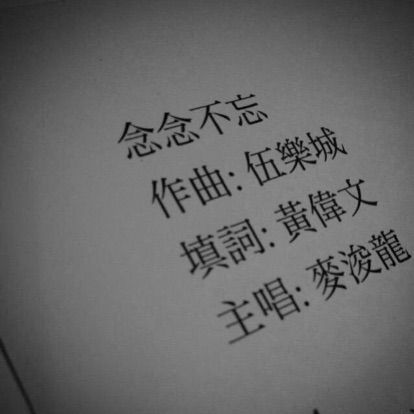 念念不忘
作曲: 伍樂城
填詞: 黃偉文
主唱: 麥浚龍